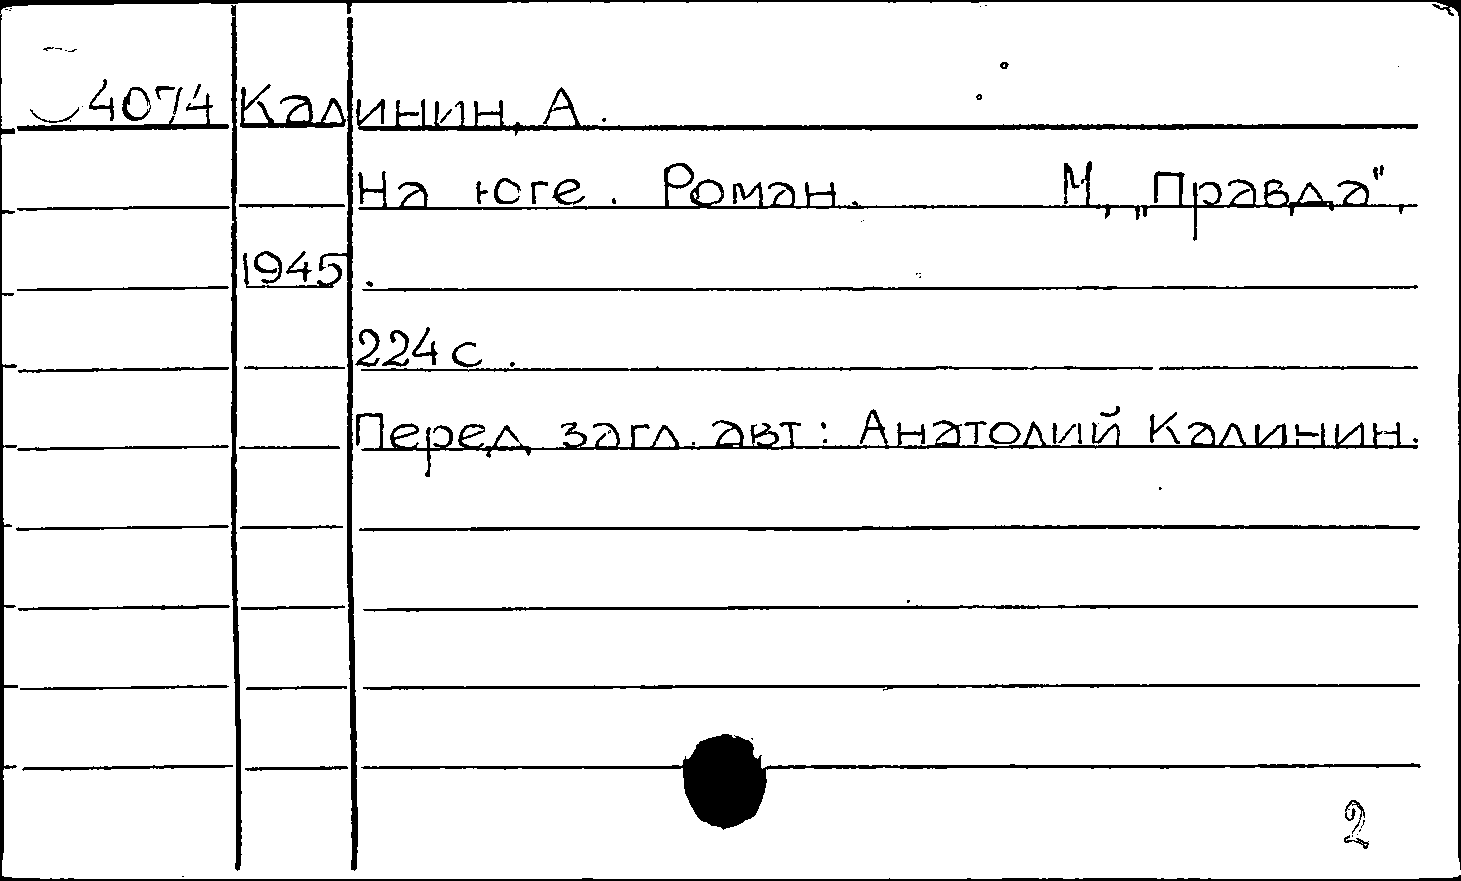 4074 Калинин, А.
На юге. Роман. М, „Правда",
1945.
224 с.
Перед загл. авт: Анатолий Калинин.
2